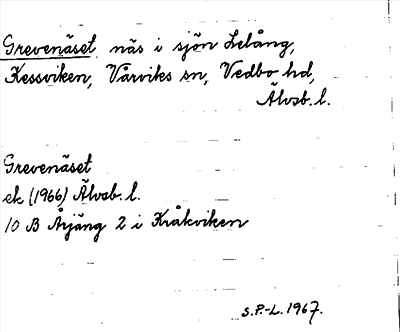 Grevenäset, näs i sjön Lelång,
Kessviken, Vårviks sn, Vedbo hd,
Älvsb. l.
Grevenäset
ek (1966) Älvsb. l.
10 B Årjäng 2 i Kråkviken
S.P.-L. 1967.